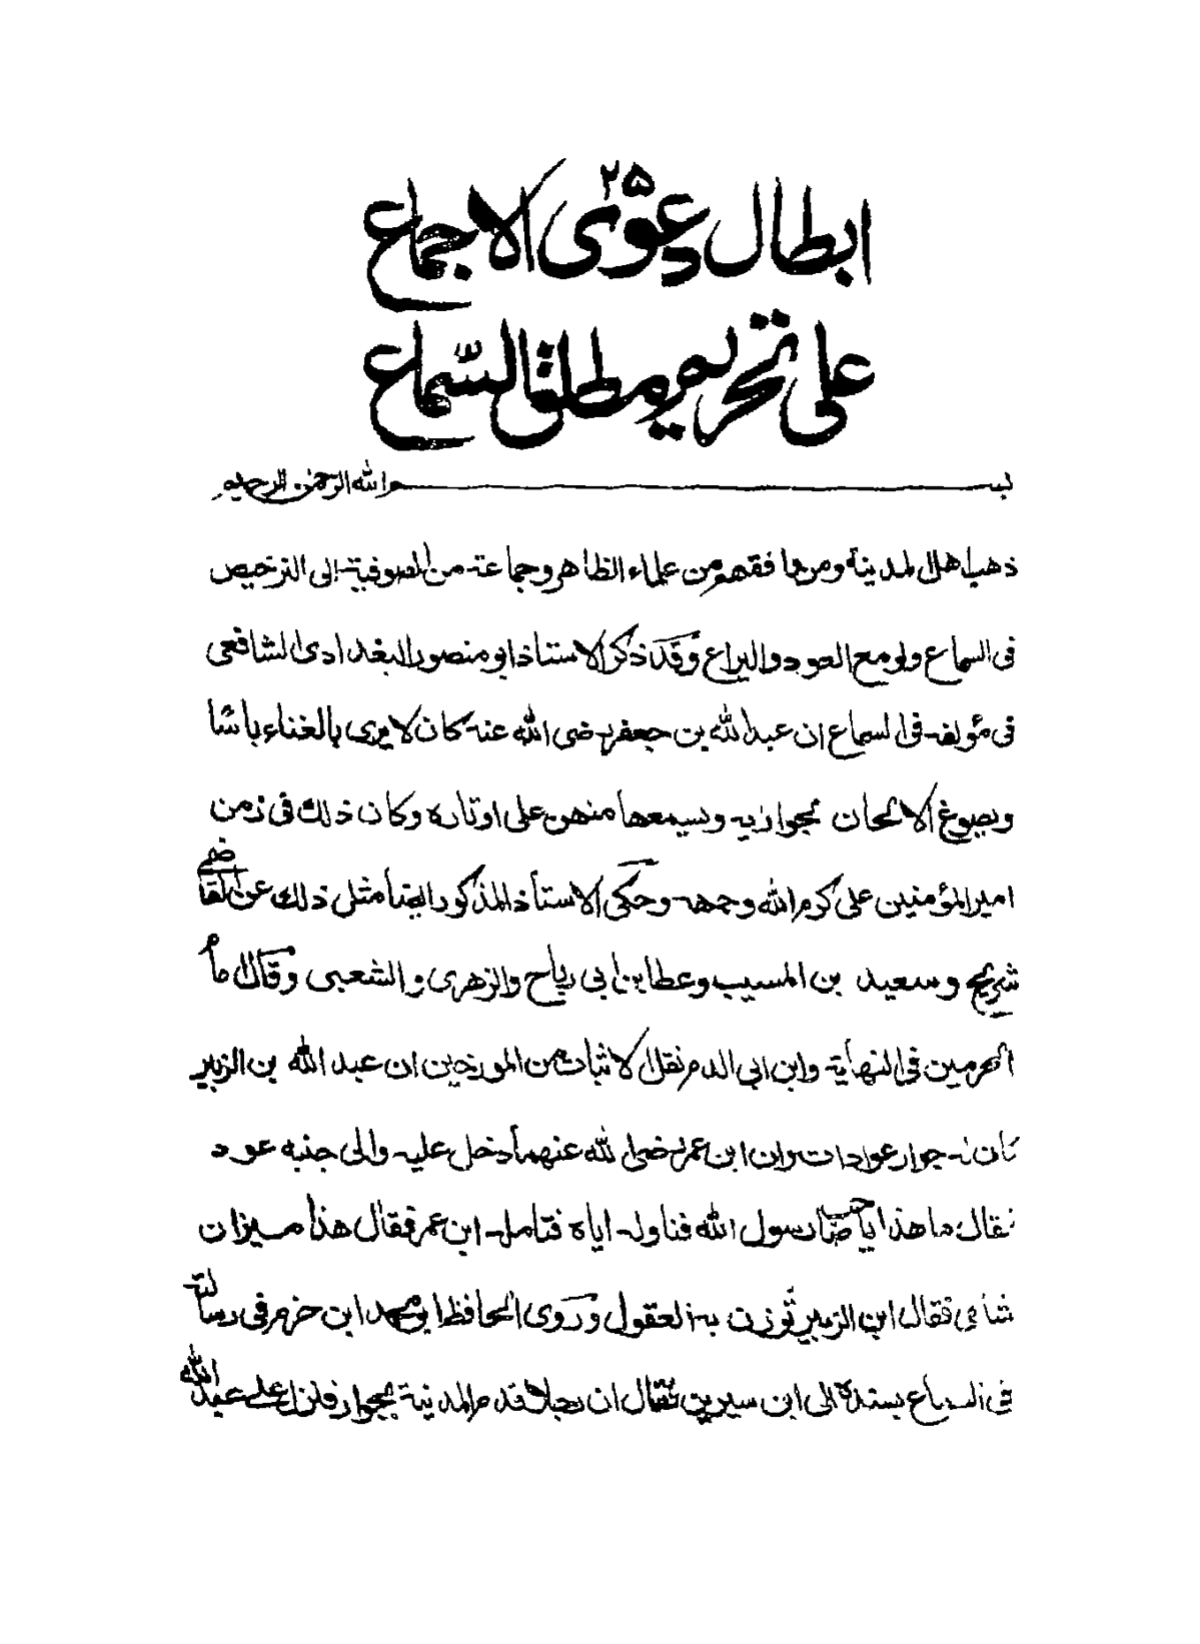 ٢٥
ابطال دعوى الاجماع
على تحريم مطلق السماع
بسم الله الرحمن الرحيم
ذهب اهل المدينة ومن وافقهم من علماء الظاهر وجماعة من الصوفية الى الترخيص
فى السماع ولو مع العود واليراع وقد ذكر الاستاذ ابو منصور البغدادى الشافعى
فى مؤلفه فى السماع ان عبد الله بن جعفر رضى الله عنه كان لا يرى بالغناء باسا
ويصوغ الالحان لجواريه ويسمعها منهن على اوتاره وكان ذلك فى زمن
امير المؤمنين على كرم الله وجهه وحكى الاستاذ المذكور ايضا مثل ذلك عن القاضى
شريح وسعيد بن المسيب وعطا بن ابى رباح والزهرى والشعبى وقال امام
الحرمين فى النهاية وابن ابى الدم نقل الاثبات من المورخين ان عبد الله بن الزبير
كان له جوار عوادات وان ابن عمر رضى الله عنهما دخل عليه والى جنبه عود
فقال ما هذا يا صاحب رسول الله فناوله اياه فتامله ابن عمر فقال هذا ميزان
شامى فقال ابن الزبير توزن به العقول وروى الحافظ ابو محمد ابن حزم فى رسالته
فى السماع بسنده الى ابن سيرين فقال ان رجلا قدم المدينة بجوار فنزل على عبد الله